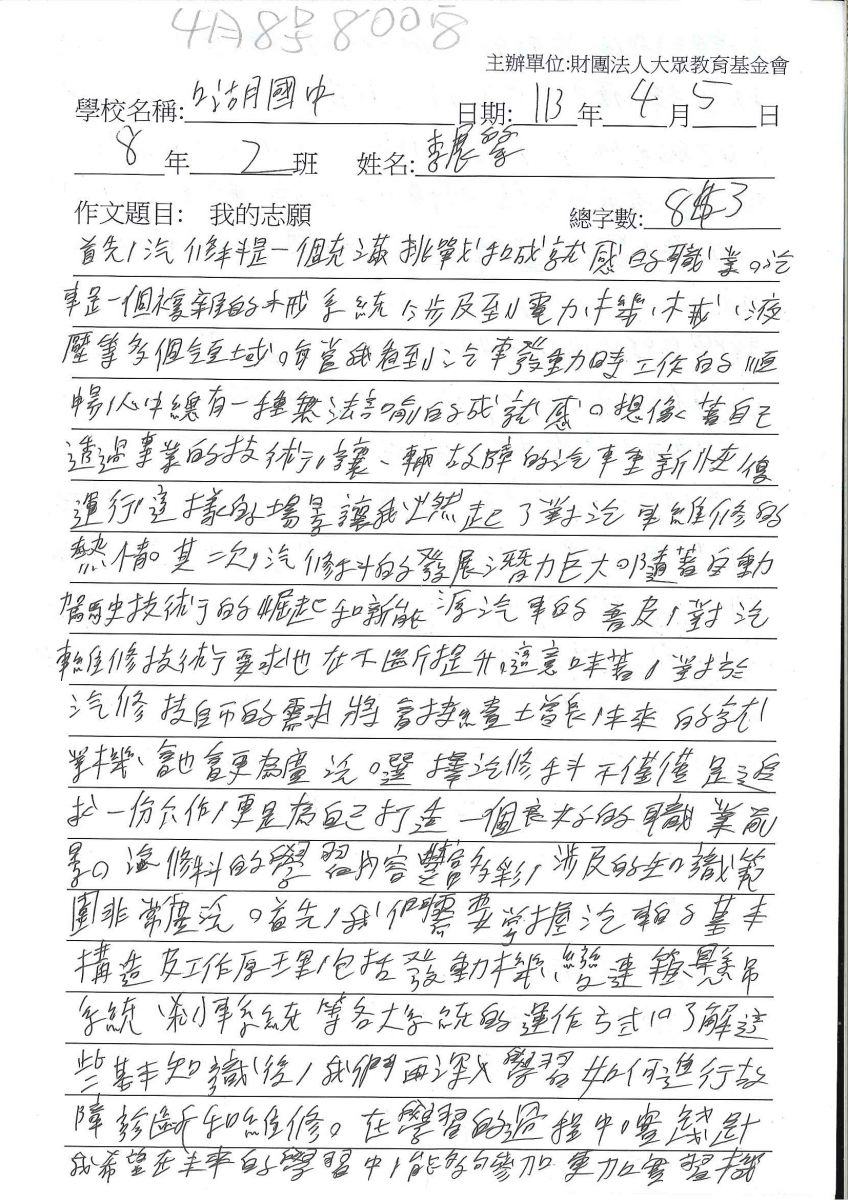 4月8号800字
主辦單位:財團法人大眾教育基金會
學校名稱:口湖國中 日期: 113 年 4 月 5 日
8 年 2 班 姓名:李展
作文題目: 我的志願 總字數: 3
首先,汽修科是一個充滿挑戰和成就感的職業。汽
車是一個複雜的械系統,涉及到電力、機械、液
壓等多個領域。每當我看到汽車發動時工作的順
暢,心中總有一種無法言喻的成就感。想像著自己
透過專業的技術,讓一輛故障的汽車重新恢復
運行,這樣的場景讓我燃起了對汽車維修的
熱情。其二次,汽修科的發展潛力巨大。隨著自動
駕駛技術的崛起和新能源汽車的普及,對汽
車維修技術要求也在不斷提升。這意味著,對於
汽修技師的需求將會持續增長,未來的就
業機會也會更為廣泛。選擇汽修科不僅僅是追
求一份工作,更是為自己打造一個良好的職業前
景。汽修科的學習內容豐富多彩,涉及的知識範
圍非常廣泛。首先,我們需要掌握汽車的基本
構造及工作原理,包括發動機、變速箱、懸吊
系統、剎車系統等各大系統的運作方式。了解這
些基本知識後,我們再深入學習如何進行故
障診斷和維修。在學習的過程中,實踐是
我希望在未來的學習中,能夠參加更加實習機